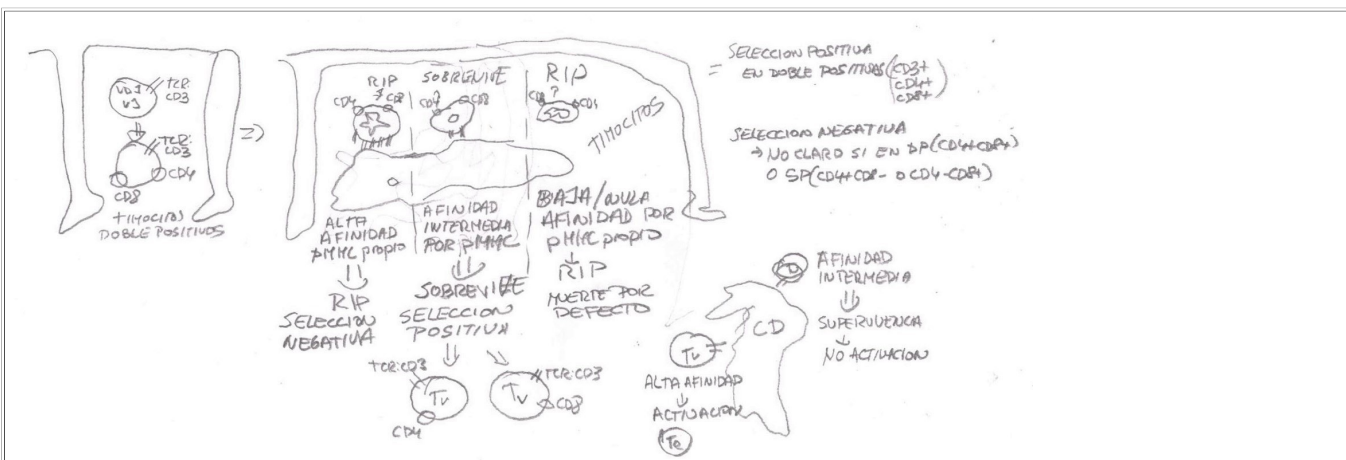 VDJ
VJ
TCR:
CD3
TCR:
CD3
CD4
CD8
TIMOCITOS
DOBLE POSITIVOS
RIP
CD4 CD8
SOBREVIVE
CD4 CD8
RIP
?
CD8 CD4
TIMOCITOS
ALTA
AFINIDAD
pMHC propio
RIP
SELECCION
NEGATIVA
AFINIDAD
INTERMEDIA
POR pMHC
SOBREVIVE
SELECCION
POSITIVA
BAJA/NULA
AFINIDAD POR
pMHC propio
RIP
MUERTE POR
DEFECTO
TCR:CD3
Tv
CD4
TCR:CD3
Tv
CD8
= SELECCION POSITIVA
EN DOBLE POSITIVAS (CD3+
CD4+
CD8+)
SELECCION NEGATIVA
→ NO CLARO SI EN DP(CD4+CD8+)
O SP(CD4+CD8- o CD4-CD8+)
AFINIDAD
INTERMEDIA
SUPERVIVENCIA
NO ACTIVACION
CD
Tv
ALTA AFINIDAD
ACTIVACION
Te